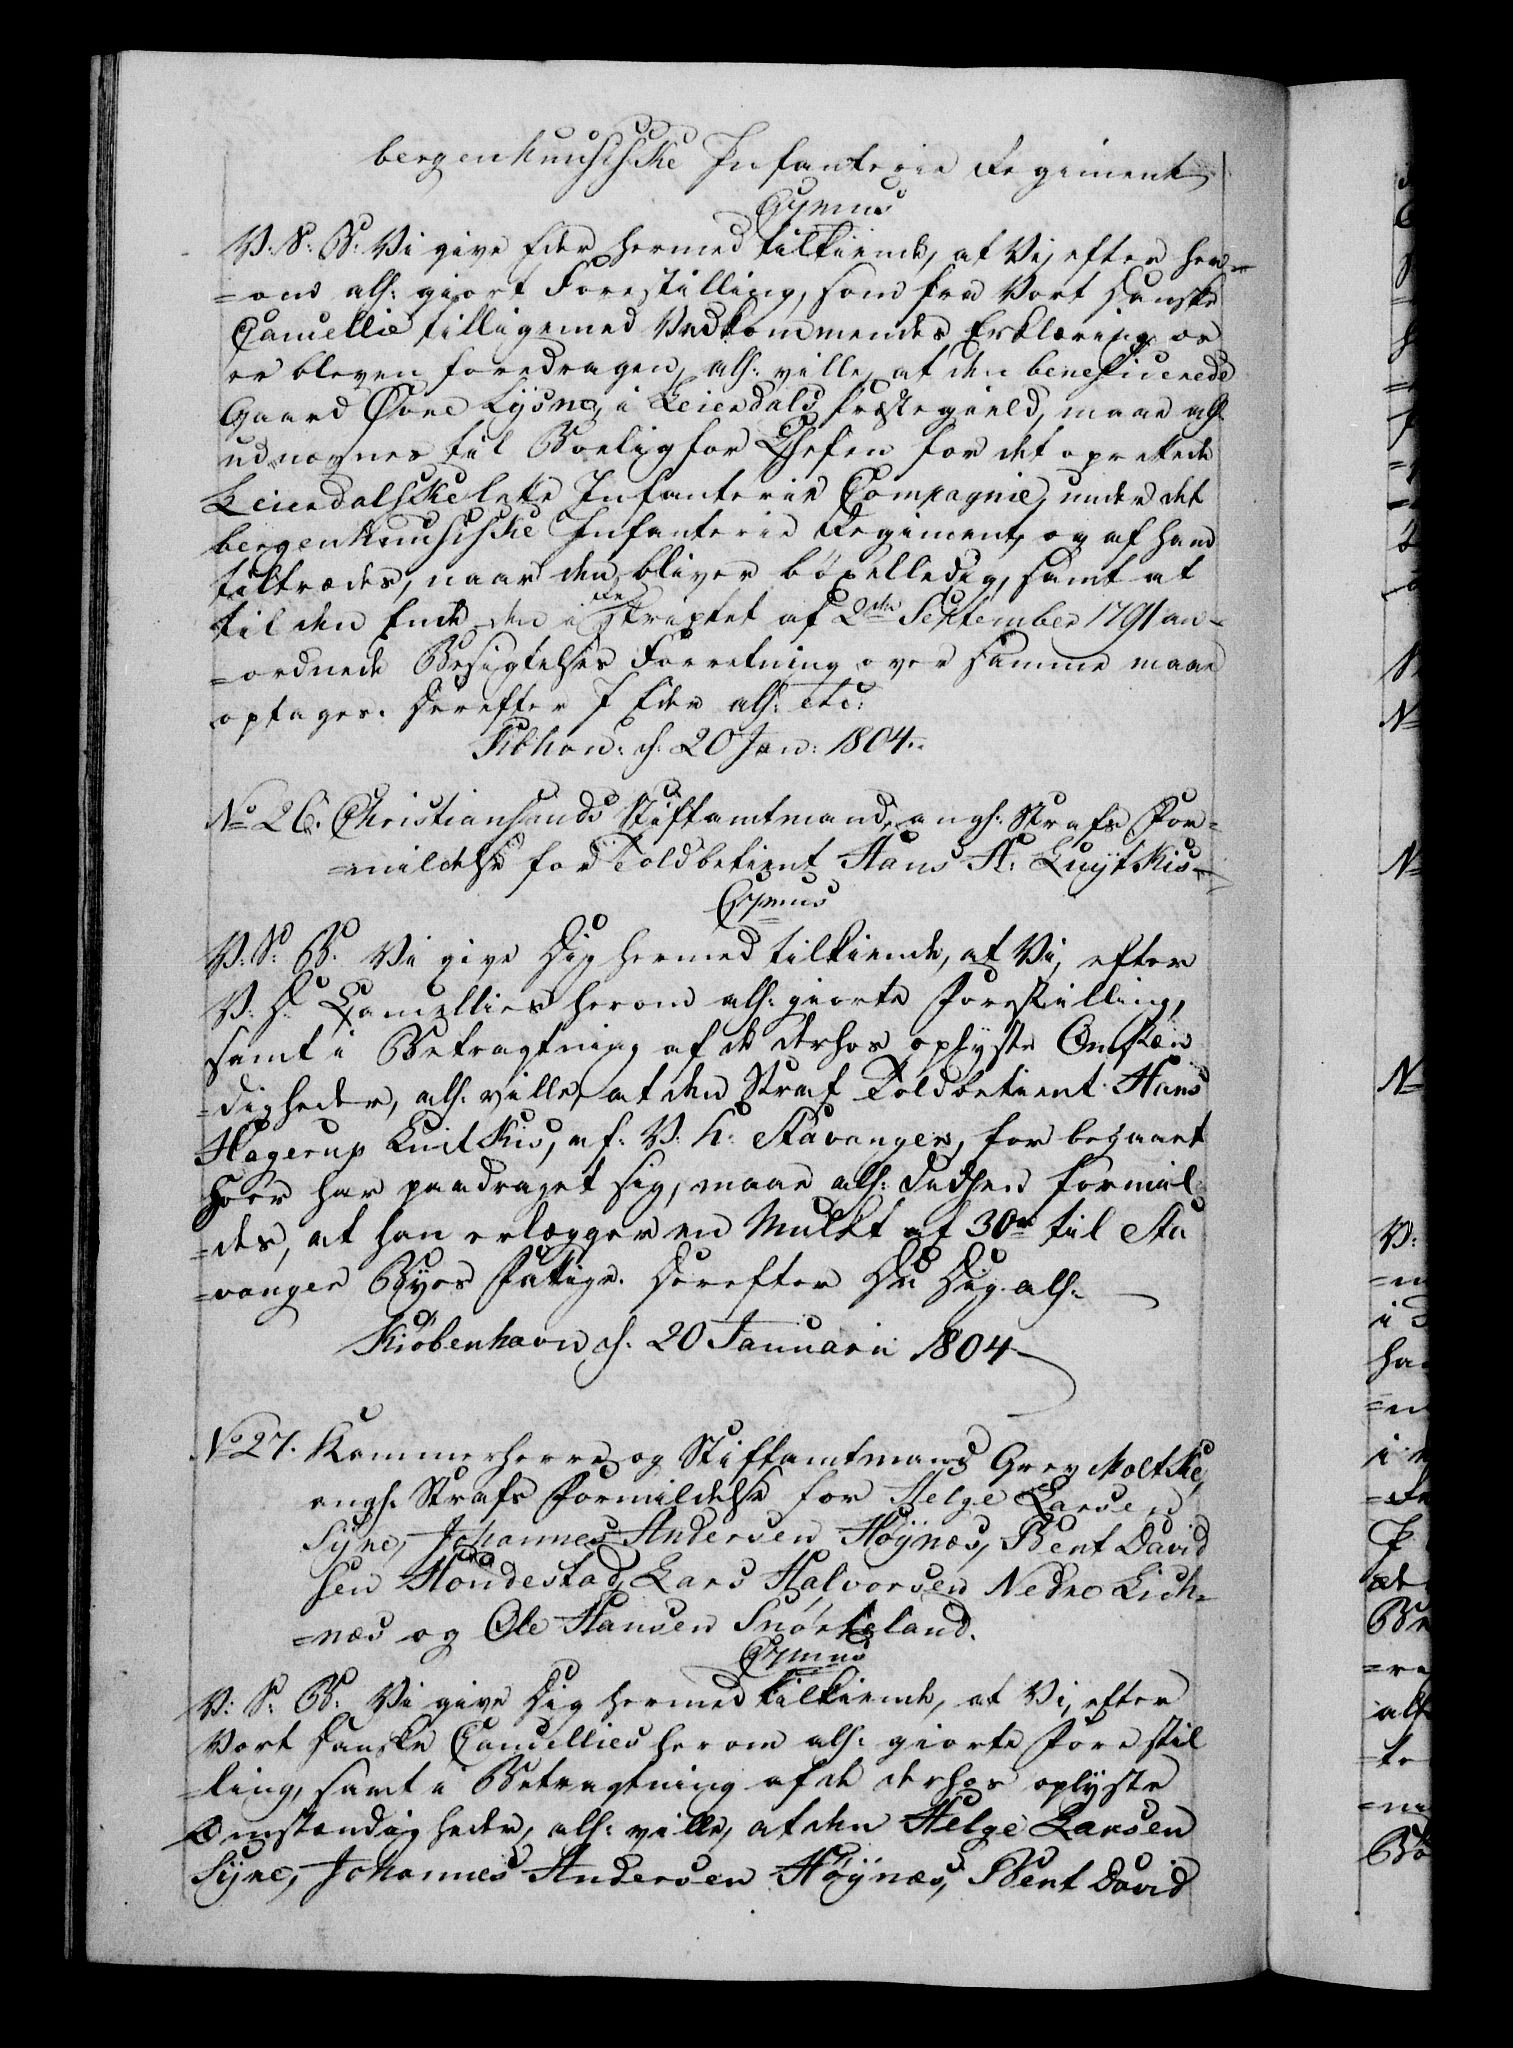 bergenhuusiske Infanterie Regiment
C7mus
V: S: B: Vi give Eder hermed tilkiende, at Vi, efter her=
=om alh: giort Forestilling, som fra Vort danske
Cancellie tilligemed Vedkommendes Erklæring os
er bleven foredragen, alh: ville, at den beneficerede
Gaard Øvre Lysne, i Leierdals Præstegield, maae alh:
udnævnes til Bolig for Chefen for det oprettede
Leierdalske lette Infanterie Compagnie, under det
bergenhuusiske Infanterie Regiment, og af ham
tiltrædes, naar den bliver böxelledig, samt at
til den Ende den i Rescriptet af 2den September 1791 an=
=ordnede Besigtelses Forretning over samme maae
optages. Derefter I Eder alh: etc:
Kbhavn: d: 20 Jan: 1804.
No 26. Christiansands Stiftamtmand, angh: Straffs For=
=mildelse for Toldbetient Hans H: Luytkis
C7mus
V: S: B: Vi give Dig hermed tilkiende, at Vi, efter
V: D: Cancellies herom alh: giorte Forestilling,
samt i Betragtning af de derhos oplyste Omstæn
=digheder, alh: ville, at den Straf Toldbetient Hans
Hagerup Luitkis, af: V: K: Stavanger, for begaaet
Hoer har paadraget sig, maae alh: saadsen formil
=des, at han erlægger en Mulkt af 30rd til Sta
=vanger Byes Fattige. Derefter Du Dig alh:
Kiöbenhavn d: 20 Januarii 1804
No 27. Kammerherre og Stiftamtmand Grev Moltke,
angh: Straffs Formildelse for Helge Larsen
Syre, Johannes Andersen Höynæs, Bent David
sen Hondestad, Lars Halvorsen Nedre Lich=
=næs og Ole Hansen Snörteland.
C7mus
V: S: B: Vi give Dig hermed tilkiende, at Vi, efter
Vort danske Cancellies herom alh: giorte Forestil
=ling, samt i Betragtning af de derhos oplyste
Omstændigheder, alh: ville, at den Helge Larsen
Syre, Johannes Andersen Höynæs, Bent David